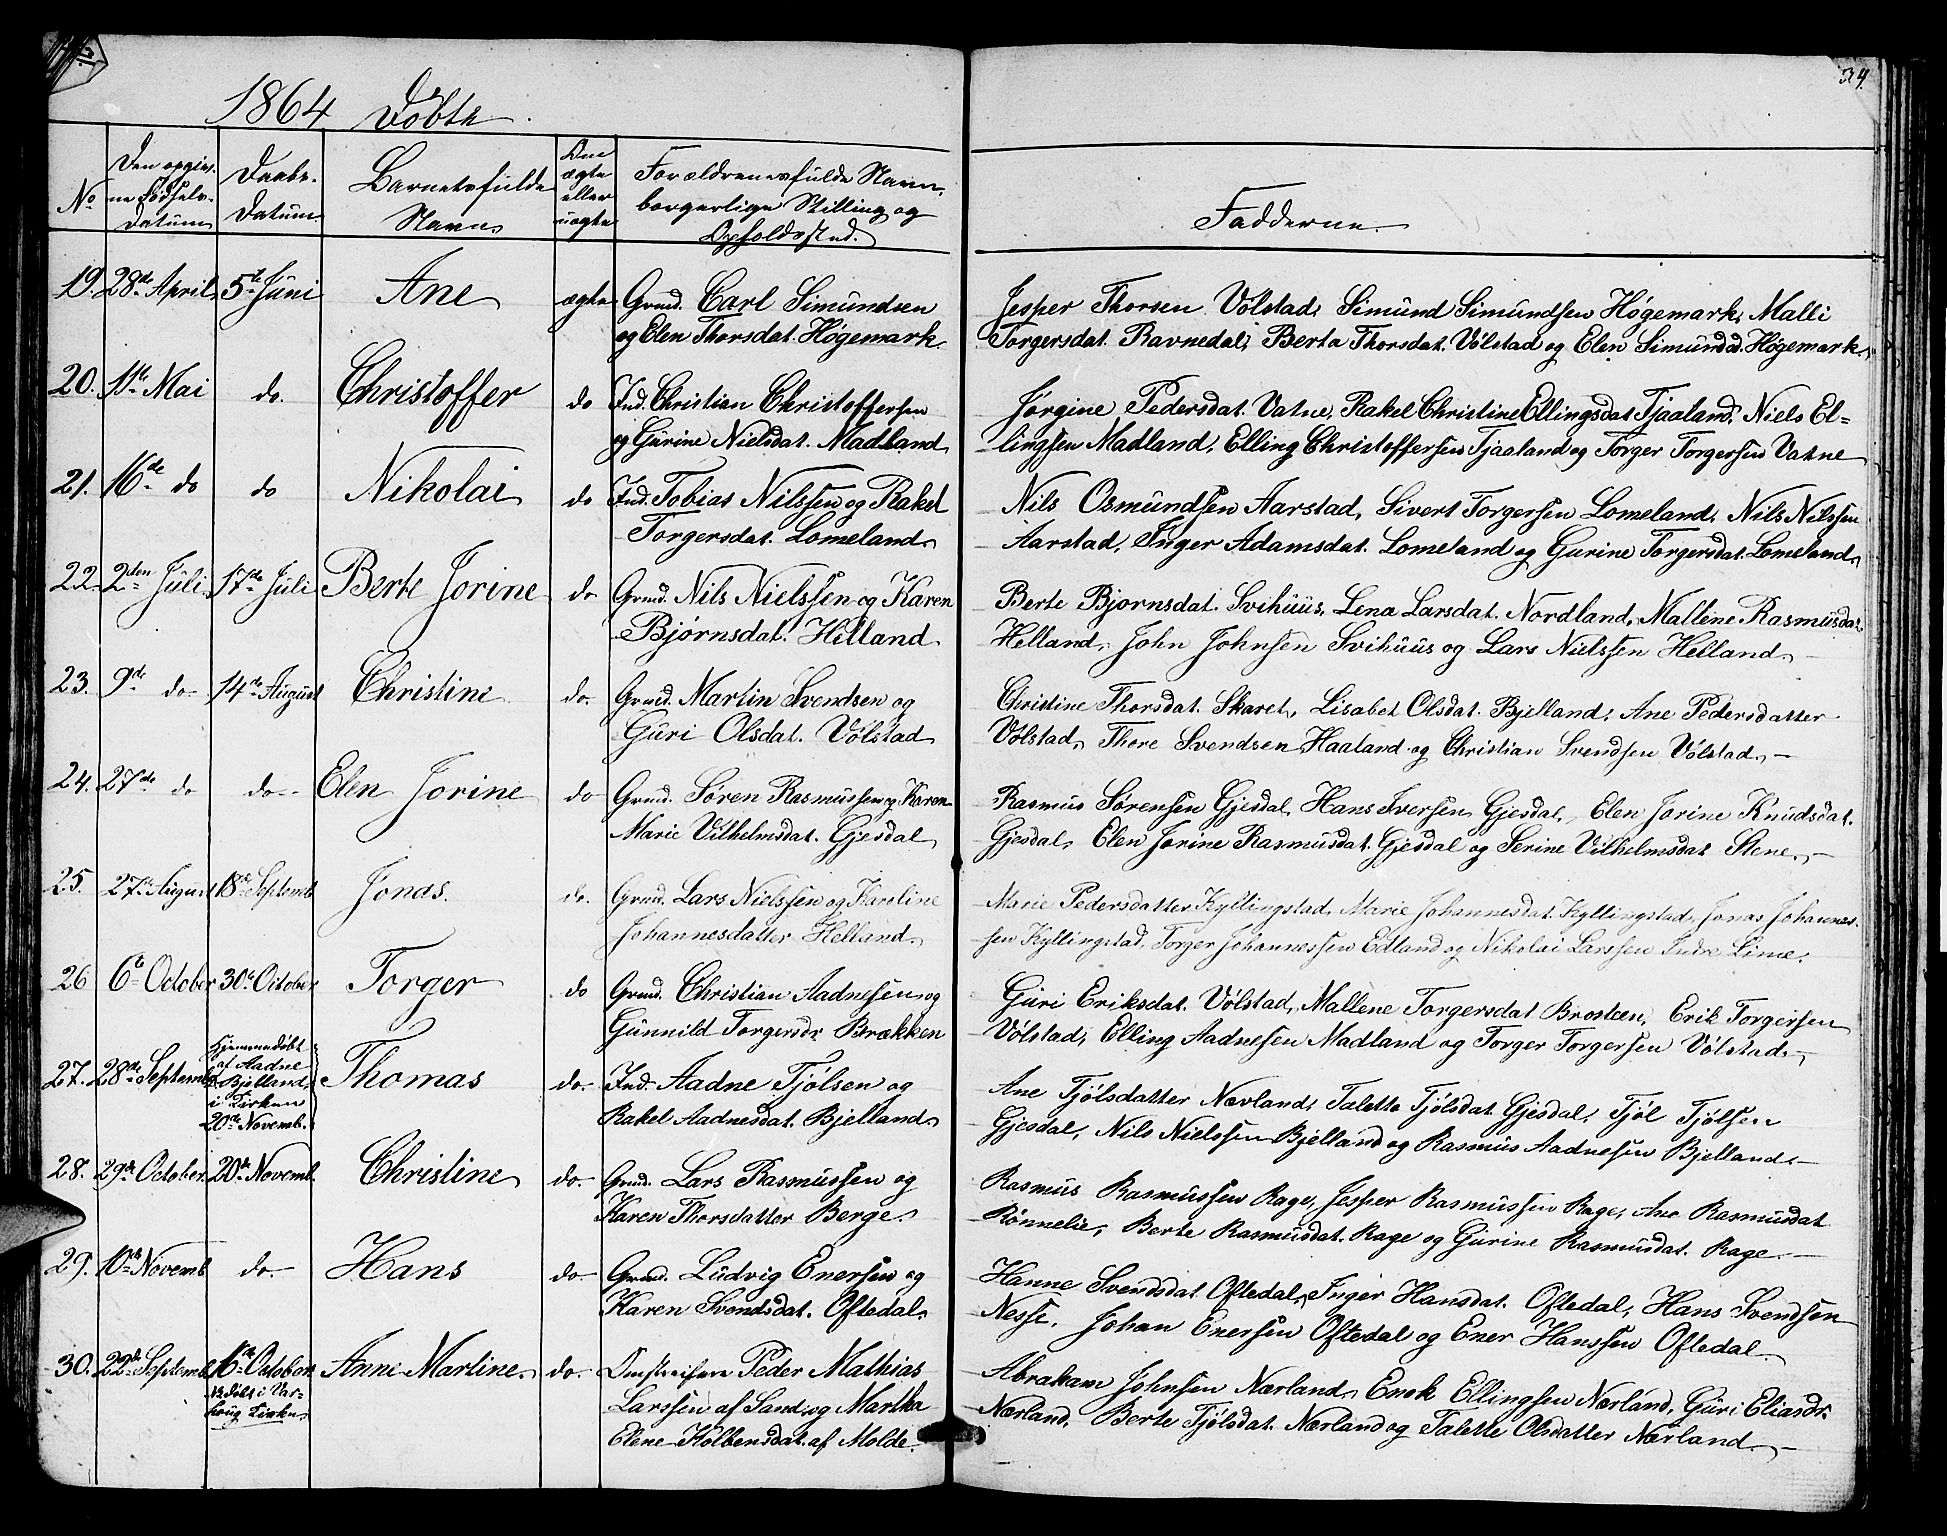 34.
1864 Döbte
No
Den opgiv-
ne Födsels-
datum
Daabs-
Datum
Barnets fulde
Navn
Om
ægte
eller
uægte
Forældrenes fulde Navn,
borgerlige Stilling og
Opholdssted.
Fadderne
19. 28de April 5te Juni Ane ægte Grmd. Carl Simundsen
og Elen Thorsdat. Høgemark
Jesper Thorsen Vølstad, Simund Simundsen Høgemark, Malli
Torgersdat. Ravnedal, Berta Thorsdat. Vølstad og Elen Simundsd. Høgemark
20. 1te Mai do. Christoffer do Ind. Christian Christoffersen
og Gurine Nielsdat. Madland
Jørgine Pedersdat. Vatne, Rakel Christine Ellingsdat Tjaaland, Niels El-
lingsen Madland, Elling Christoffersen Tjaaland og Torger Torgersen Vatne
21. 16de do do Nikolai do Ind. Tobias Nilssen og Rakel
Torgersdat. Lomeland
Nils Osmundsen Aarstad, Sivert Torgersen Lomeland, Nils Nilssen
Aarstad, Inger Adamsdat. Lomeland og Gurine Torgersdat. Lomeland
22. 2den Juli 17de Juli Berte Jorine do Grmd. Nils Nielssen og Karen
Bjørnsdat. Helland
Berte Bjornsdat. Svihuus, Lena Larsdat. Nordland, Mallene Rasmusdat.
Helland, John Johnsen Svihuus og Lars Nielssen Helland
23. 9de do 14de August Christine do. Grmd. Martin Svendsen og
Guri Olsdat. Vølstad
Christine Thorsdat. Skaret, Lisabet Olsdat. Bjelland, Ane Pedersdatter
Vølstad, Thore Svendsen Haaland og Christian Svendsen Vølstad.
24. 27de do do Elen Jorine do Grmd. Søren Rasmussen og Karen
Marie Vilhelmsdat. Gjesdal
Rasmus Sørensen Gjesdal, Hans Iversen Gjesdal, Elen Jorine Knudsdat.
Gjesdal, Elen Jorine Rasmusdat. Gjesdal og Serine Vilhelmsdat Stene.
25. 27de August 18de Septemb Jonas. do. Grmd. Lars Nielssen og Karoline
Johannesdatter Helland
Marie Pedersdatter Kyllingstad, Marie Johannesdat. Kyllingstad, Jonas Johannes-
sen Kyllingstad, Torger Johannessen Edland og Nikolai Larssen Indre Lime.
26 6te October 30te October Torger do Grmd. Christian Aadnesen og
Gunnild Torgersdr. Brækken
Guri Eriksdat. Vølstad, Mallene Torgersdat Brosteen, Erik Torgersen
Vølstad, Elling Aadnesen Madland og Torger Torgersen Vølstad.
27. 28de Septemb Hjemmedøbt
af Aadne
Bjelland,
i Kirken
20de Novemb. Thomas do. Ind. Aadne Tjölsen og
Rakel Aadnesdat. Bjelland
Ane Tjölsdatter Nævland, Talette Tjölsdat. Gjesdal, Tjøl Tjölsen
Gjesdal, Nils Nielssen Bjelland og Rasmus Aadnesen Bjelland.
28. 29de October 20de Novemb. Christine do. Grmd. Lars Rasmussen og
Karen Thorsdatter Berge.
Rasmus Rasmussen Rage, Jesper Rasmussen Rage, Ane Rasmusdat
Rönnelie, Berte Rasmusdat. Rage og Gurine Rasmusdat. Rage.
29. 10de Novemb do. Hans do. Grmd. Ludvig Enersen og
Karen Svendsdat. Oftedal.
Hanne Svendsdat Oftedal, Inger Hansdat. Oftedal, Hans Svendsen
Nesse, Johan Enersen Oftedal og Ener Hanssen Oftedal
30. 22de Septemb 16de October
døbt i Var-
houg Kirke Anne Martine do. Omstreifere Peder Mathias
Larssen af Sand og Martha
Elene Kolbensdat. af Molde.
Abraham Johnsen Nærland, Enok Ellingsen Nærland, Guri Eliasdr.
Nærland, Berte Tjölsdat. Nærland og Talette Olsdatter Nærland.